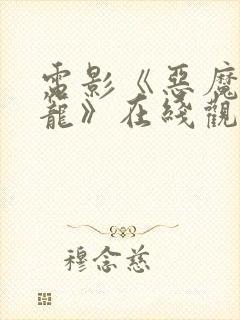 電影《惡魔
龍》在綫觀
穆念慈